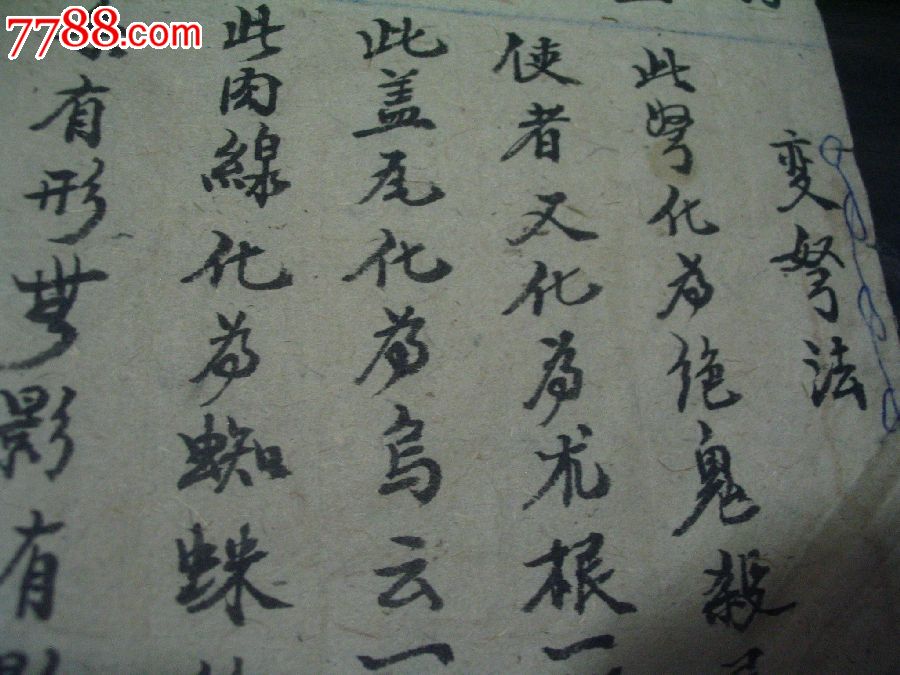 7788.com
变弩法
此弩化為绝鬼殺
使者又化為朮根一
此盖尾化為乌云一
此肉線化為蜘蛛
有形無影有影